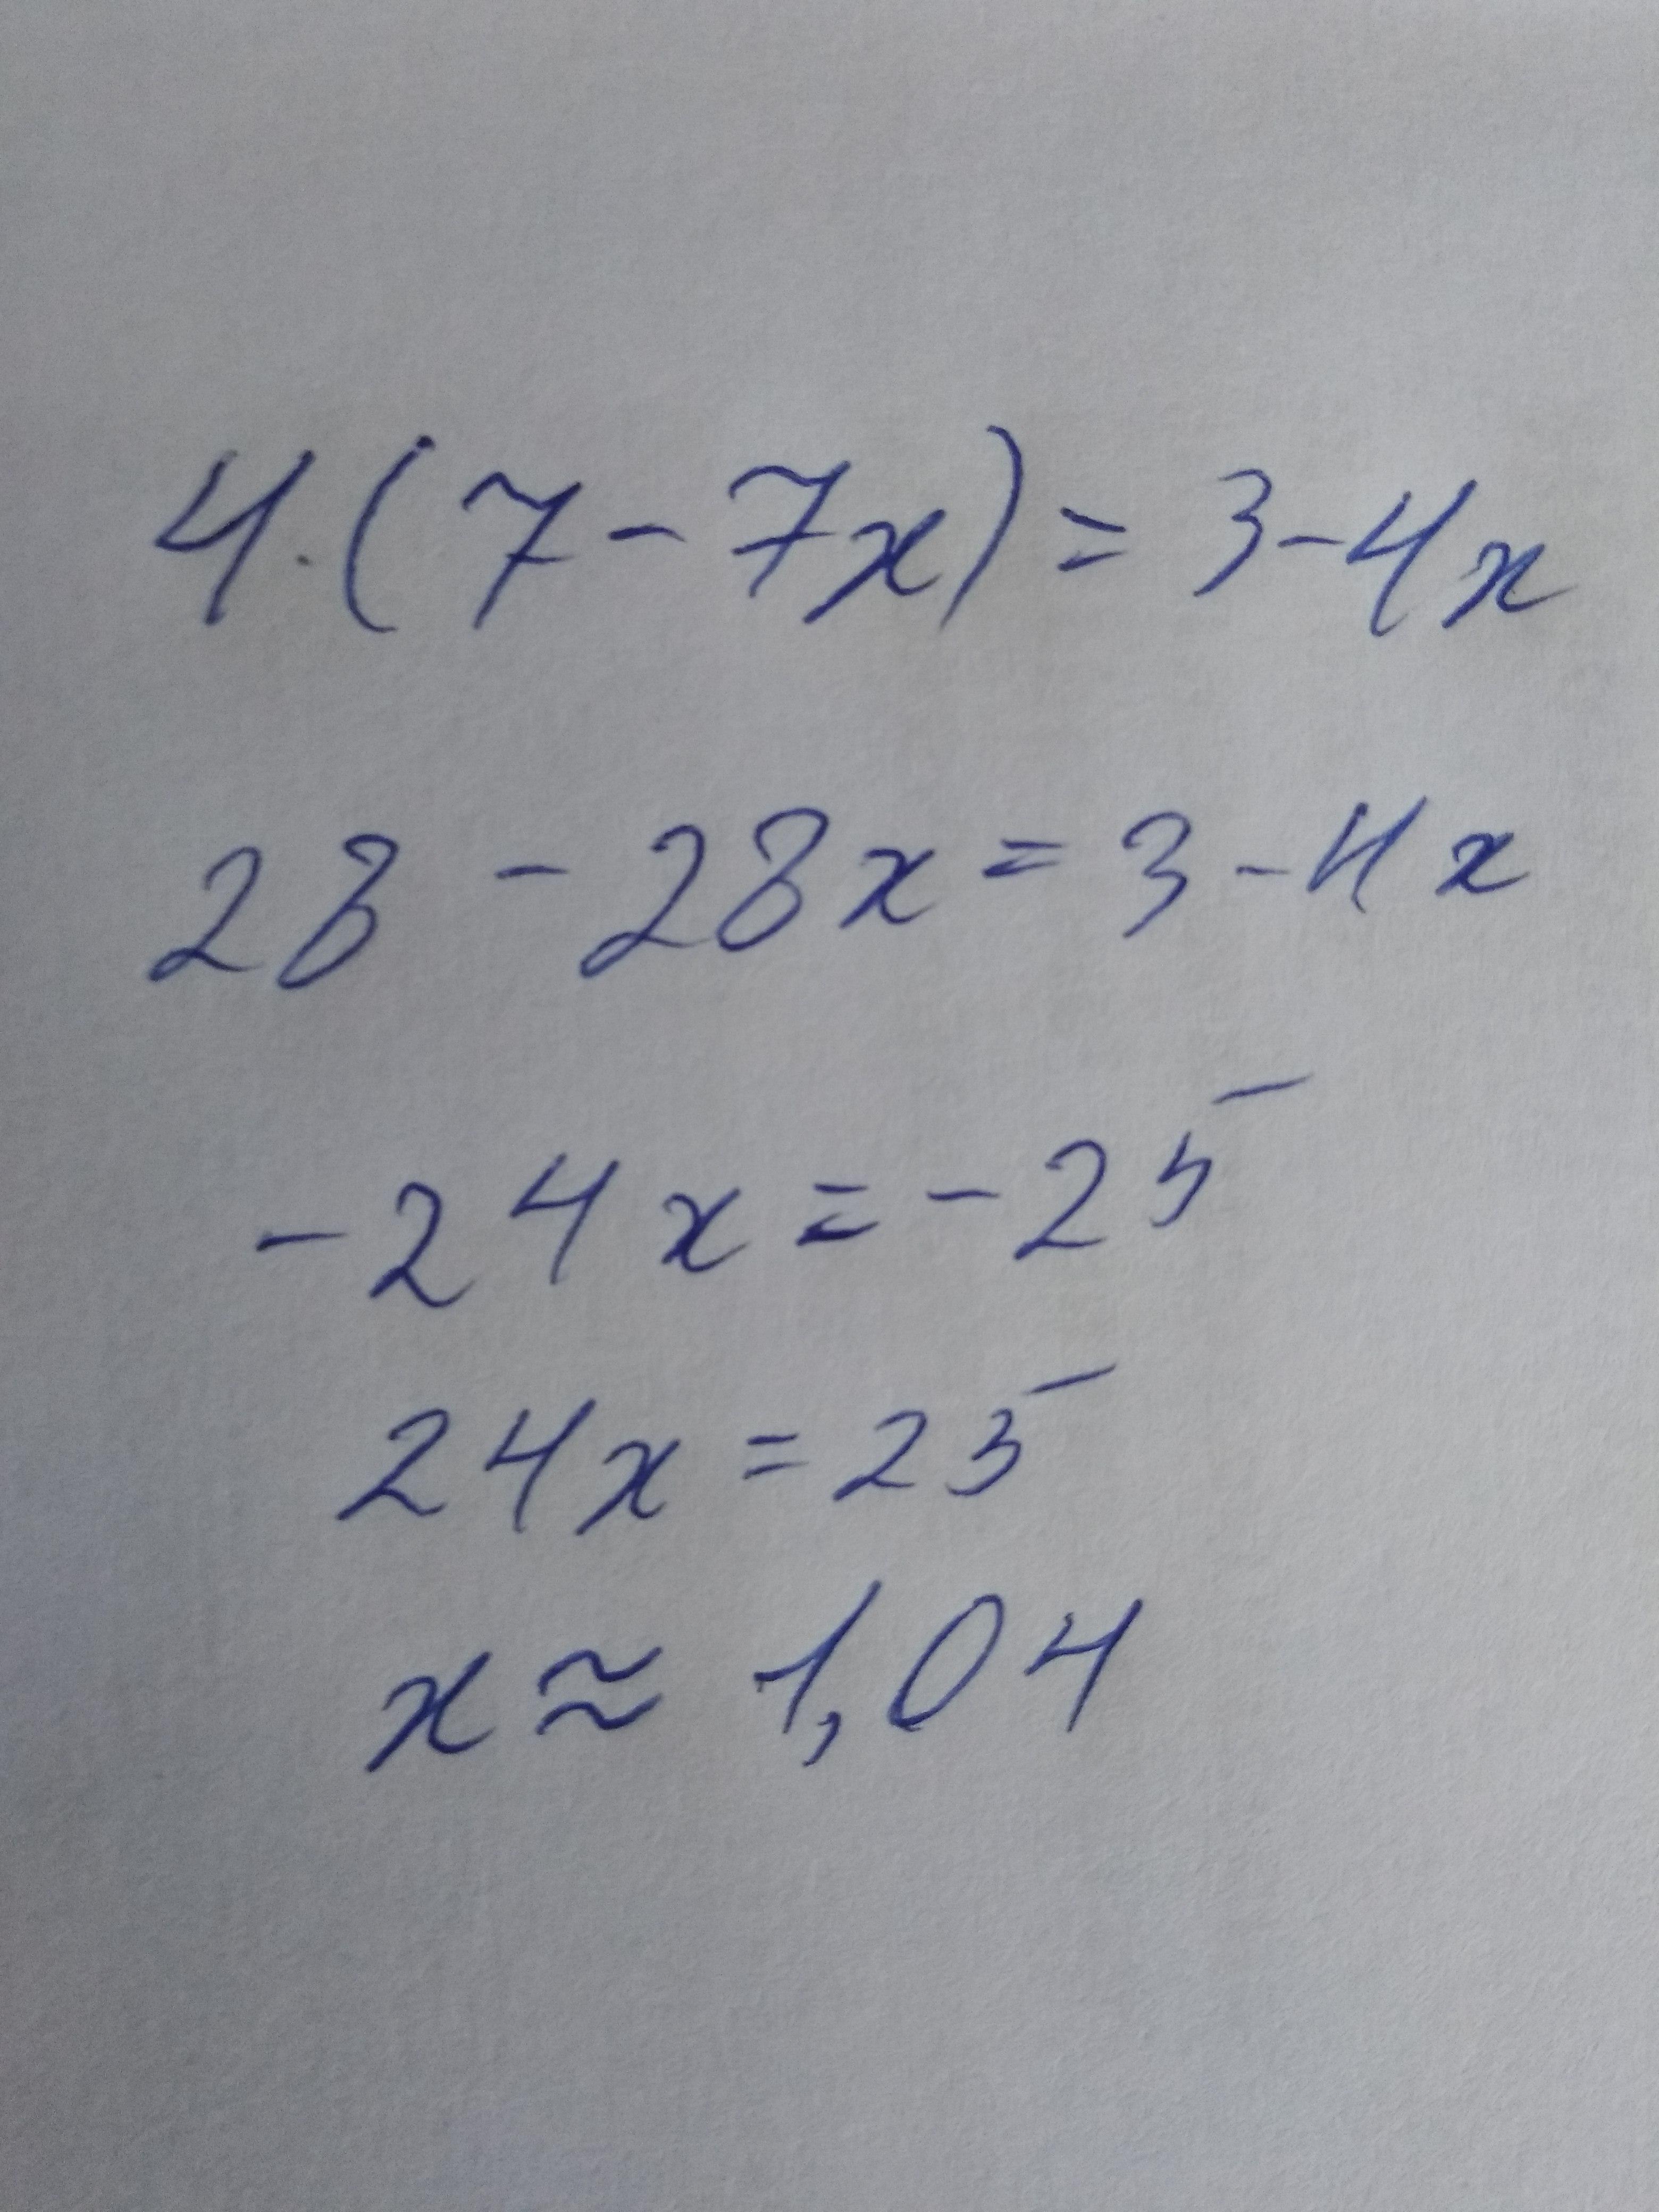 4·(7-7x)=3-4x
28-28x=3-4x
-24x=-25
24x=25
x≈1,04